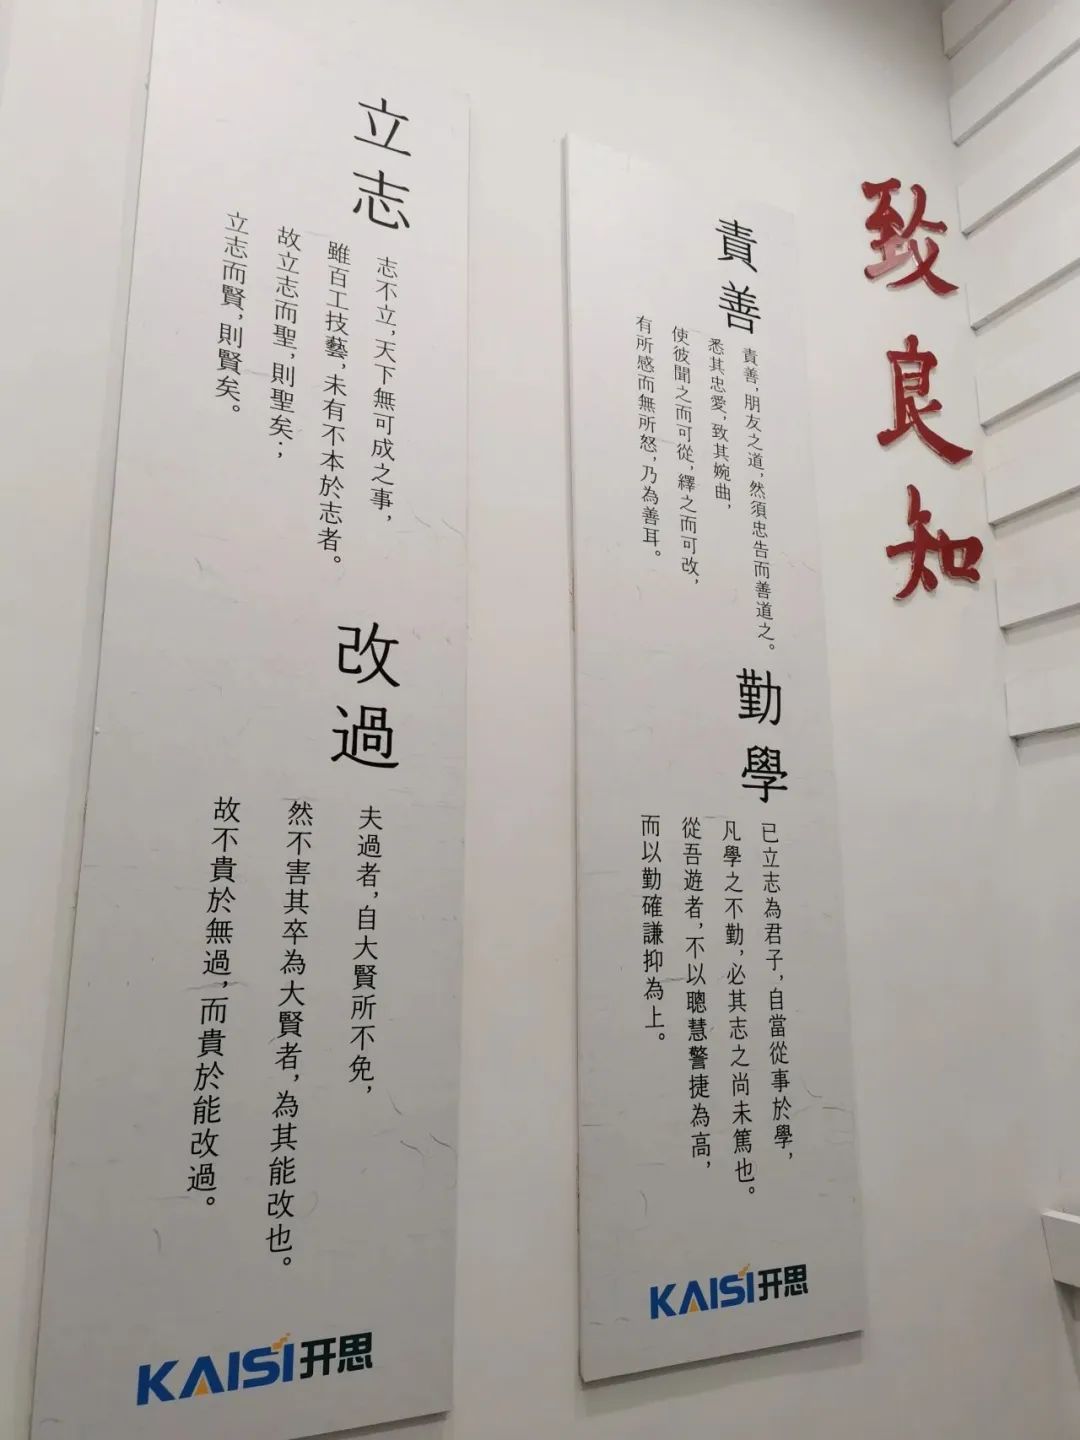 致良知
責善
責善，朋友之道，然須忠告而善道之。
悉其忠愛，致其婉曲，
使彼聞之而可從，繹之而可改，
有所感而無所怒，乃為善耳。
勤學
已立志為君子，自當從事於學，
凡學之不勤，必其志之尚未篤也。
從吾遊者，不以聰慧警捷為高，
而以勤確謙抑為上。
KAISI开思
立志
志不立，天下無可成之事，
雖百工技藝，未有不本於志者。
故立志而聖，則聖矣；
立志而賢，則賢矣。
改過
夫過者，自大賢所不免，
然不害其卒為大賢者，為其能改也。
故不貴於無過，而貴於能改過。
KAISI开思